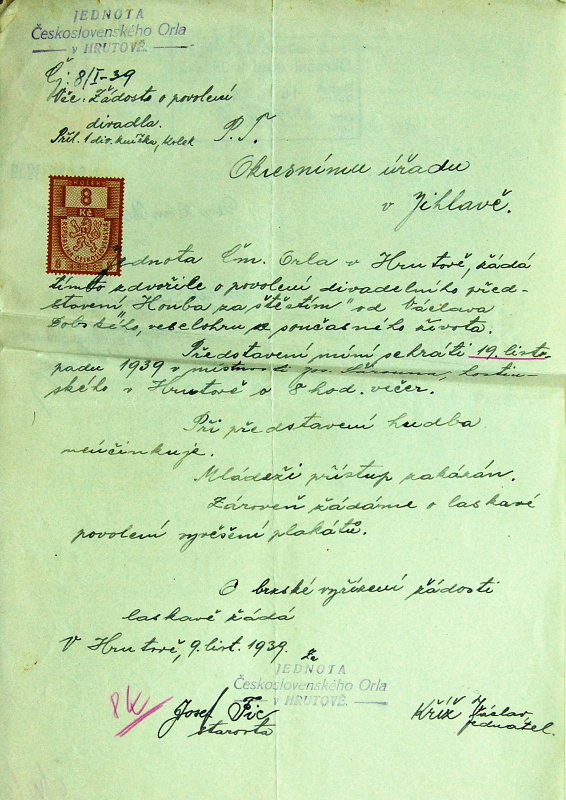 JEDNOTA
Československého Orla
v HRUTOVĚ.
Čj: 8/I-39
Věc: Žádost o povolení
divadla.
Příl. 1 div. knížka, kolek
P. T.
Okresnímu úřadu
v Jihlavě.
KOLEK
8
Kč
8 REPUBLIKA ČESKOSLOVENSKÁ 8
Jednota Čsl. Orla v Hrutově, žádá
tímto zdvořile o povolení divadelního před-
stavení "Honba za štěstím" od Václava
veselohru ze současného života.
Představení míní sehráti 19. listo
padu 1939 v místnosti p. hostin-
ského v Hrutově o 8 hod. večer.
Při představení hudba
neúčinkuje.
Mládeži přístup zakázán.
Zároveň žádáme o laskavé
povolení vyvěšení plakátů.
O brzské vyřízení žádosti
laskavě žádá
V Hrutově, 9. list. 1939.
Za
JEDNOTA
Československého Orla
v HRUTOVĚ.
8K
Josef Fic
starosta
Kříž Václav
jednatel.